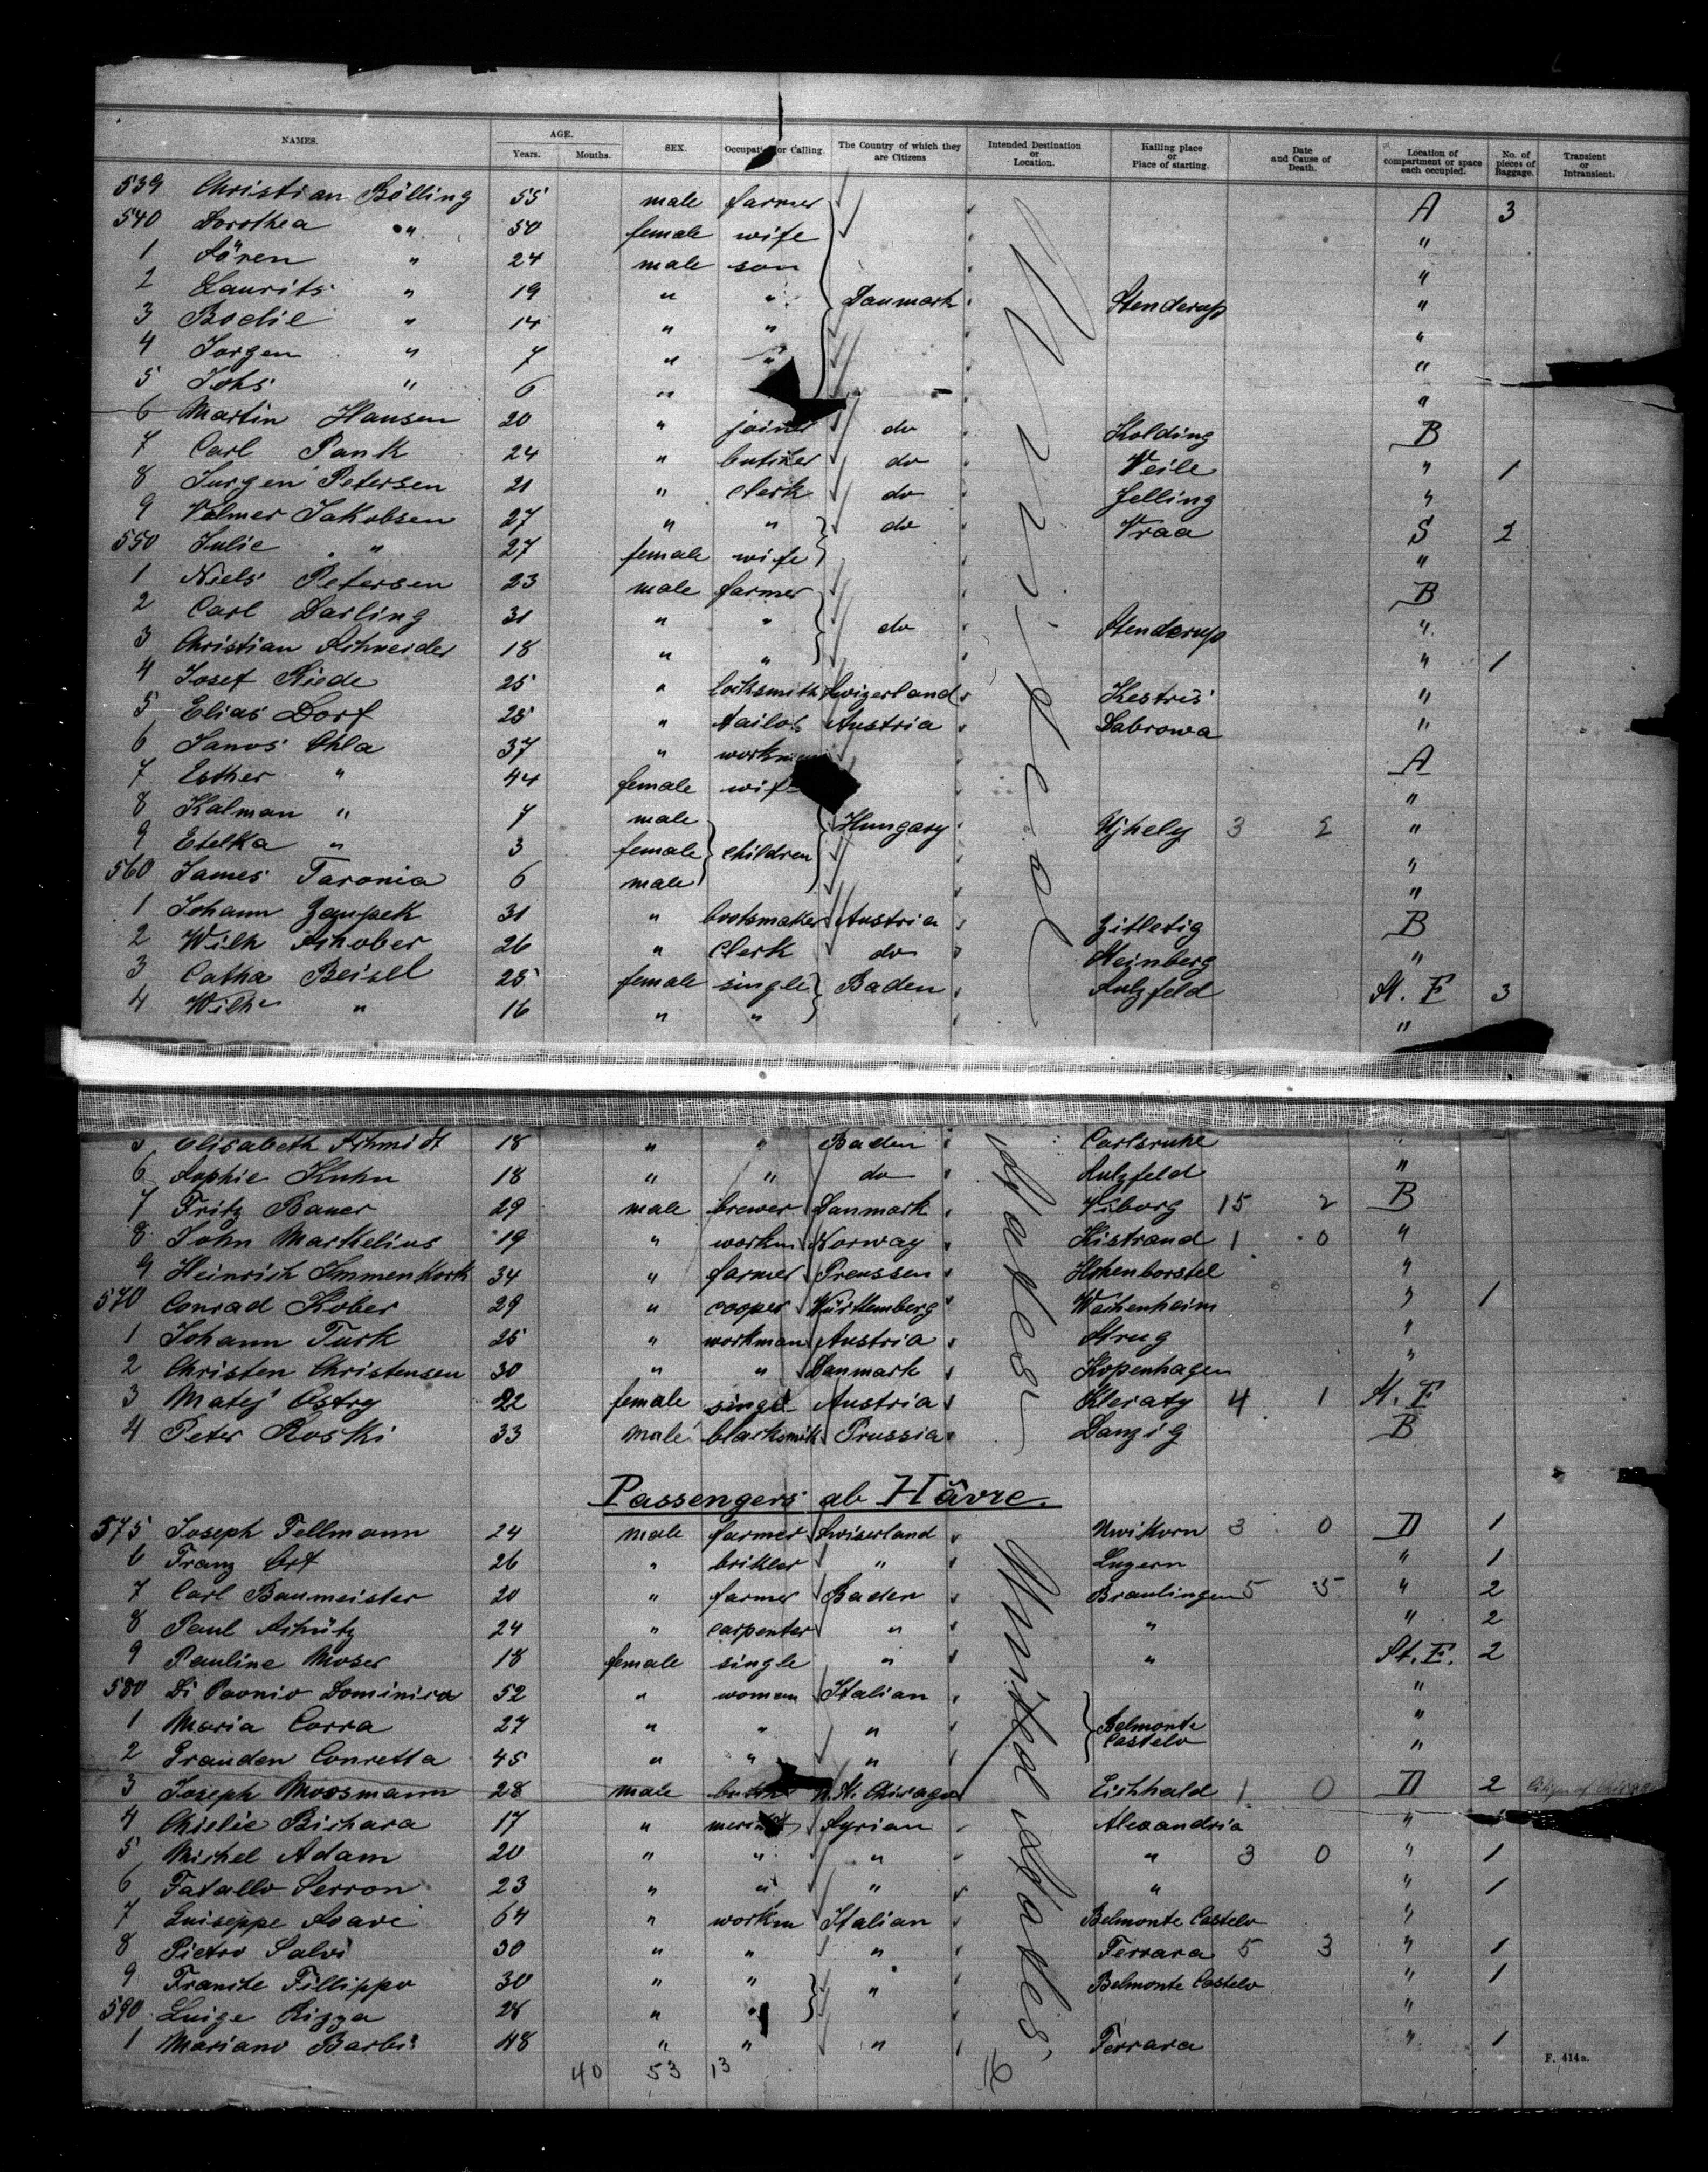 NAMES. AGE. Years. Months. SEX. Occupation or Calling. The Country of which they are Citizens Intended Destination or Location. Hailing place or Place of starting. Date and Cause of Death. Location of compartment or space each occupied. No. of pieces of Baggage. Transient or Intransient.
539 Christian Bölling 55 male farmer A 3
540 Dorothea " 50 female wife "
1 Sören " 24 male son "
2 Laurits " 19 " " Danmark Stenderup "
3 Bodil " 14 " " "
4 Jorgen " 7 " " "
5 Johs " 6 " "
6 Martin Hansen 20 " joiner do Kolding B
7 Carl Pank 24 " butcher do Veile " 1
8 Jurgen Petersen 21 " clerk do Jelling "
9 Vilmer Jakobsen 27 " " do Vraa S 2
550 Julie " 27 female wife "
1 Niels Petersen 23 male farmer B
2 Carl Darling 31 " " do Stenderup "
3 Christian Schneider 18 " " " 1
4 Josef Riede 25 " locksmith Swizerland Kestris "
5 Elias Dorf 25 " tailor Austria Dabrowa "
6 Janos Ohla 37 " workman A
7 Esther " 44 female wife "
8 Kalman " 7 male Hungary Ujhely 3 2 "
9 Etelka " 3 female children "
560 James Taronia 6 male "
1 Johann Zempek 31 " bootsmaker Austria Zitletig B
2 Wilh Schober 26 " clerk do Steinberg "
3 Catha Beisel 25 female single Baden Sulzfeld St. E 3
4 Wilh " 16 " " "
United
5 Elisabeth Schmidt 18 " " Baden Carlsruhe "
6 Sophie Kuhn 18 " " do Sulzfeld "
7 Fritz Bauer 29 male brewer Danmark Viborg 15 2 B
8 John Markelius 19 " workm Norway Kistrand 1 0 "
9 Heinrich Immenkork 34 " farmer Preussen Hohenborstel "
570 Conrad Kober 29 " cooper Württemberg Wachenheim " 1
1 Johann Turk 25 " workman Austria Strug "
2 Christen Christensen 30 " " Danmark Kopenhagen "
3 Matej Ostry 22 female singl Austria Kleraty 4 1 St. E
4 Peter Roski 33 male blacksmith Prussia Danzig B
States
Passengers ab Hâvre.
575 Joseph Fellmann 24 male farmer Swiserland Uwikorn 3 0 D 1
6 Franz Orf 26 " brikler " Luzern " 1
7 Carl Baumeister 20 " farmer Baden Braulingen 5 5 " 2
8 Paul Schütz 24 " carpenter " " " 2
9 Pauline Moser 18 female single " " St. E. 2
580 Di Paonio Dominica 52 " woman Italian "
1 Maria Corra 27 " " " Belmonte Castelo "
2 Prauden Conretta 45 " " " "
3 Joseph Moosmann 28 male N. A. Chicago Eichhald 1 0 D 2 Citizen of Chicago
4 Chielie Bichara 17 " Syrian Alexandria "
5 Michel Adam 20 " " " " 3 0 " 1
6 Fatallo Serron 23 " " " " " 1
7 Guiseppe Soave 64 " workm Italian Belmonte Castelo "
8 Pietro Salvi 30 " " " Ferrara 5 3 " 1
9 Franste Fillippo 30 " " " Belmonte Castelo " 1
590 Luige Rizza 28 " " "
1 Mariano Barbi 48 " " " Ferrara " 1
United States
40 53 13
F. 414a.